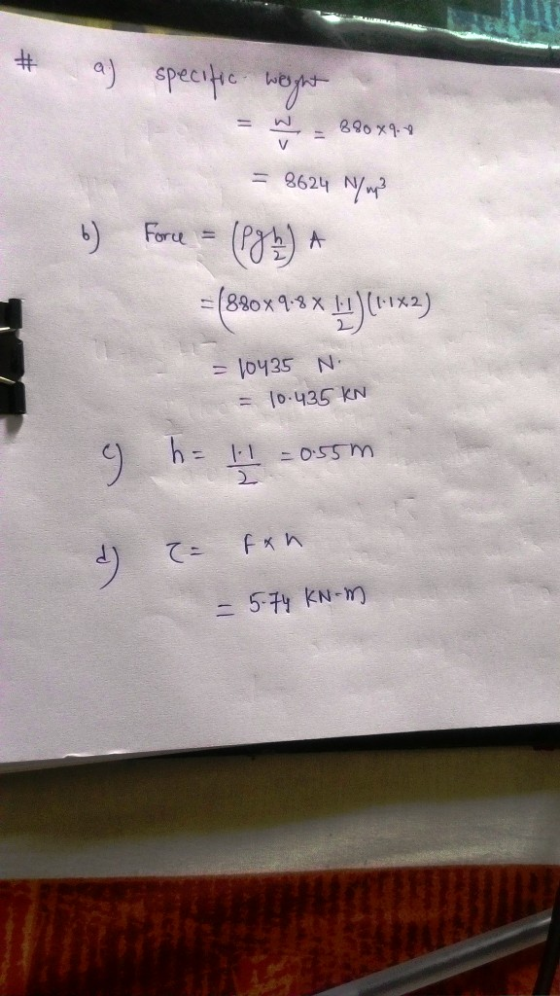 # a) specific weight
= W/V = 880×9.8
= 8624 N/m³
b) Force = (ρg h/2) A
= (880×9.8× 1.1/2)(1.1×2)
= 10435 N.
= 10.435 KN
c) h = 1.1/2 = 0.55m
d) τ = F × h
= 5.74 KN-m